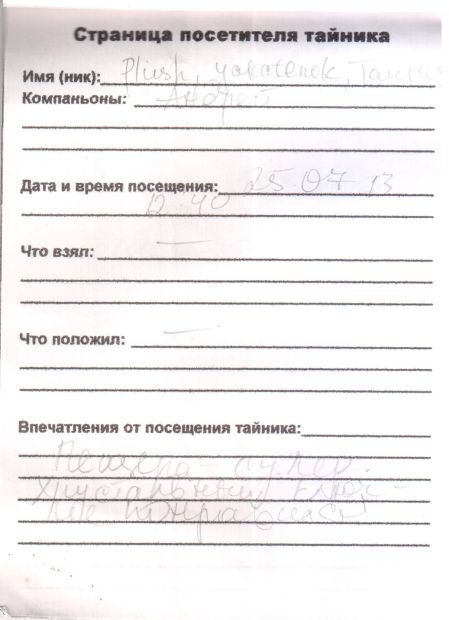 Страница посетителя тайника
Имя (ник): Plush, yakotenok,
Компаньоны: Андрей
Дата и время посещения: 25.07.13
12:40
Что взял: —
Что положил: —
Впечатления от посещения тайника:
Пещера - супер.
понравился